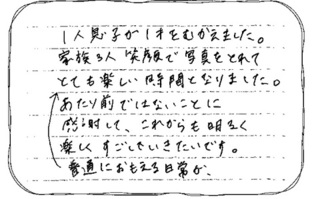 1人息子が1才をむかえました。
家族3人笑顔で写真をとれて
とても楽しい時間となりました。
あたり前ではないことに
感謝して、これからも明るく
楽しくすごしていきたいです。
普通におもえる日常が、